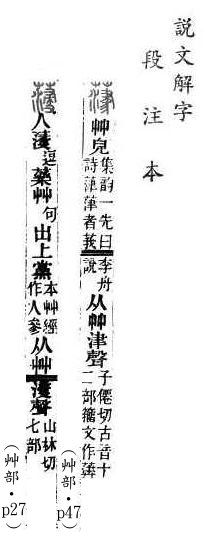 説文解字
段注本
艸皃集韵一先曰李舟說詩葏葏者莪从艸津聲子僊切古音十二部
(艸部・p47)
人薓逗藥艸句出上黨本艸經作人參从艸𣹰聲山林切七部
(艸部・p27)